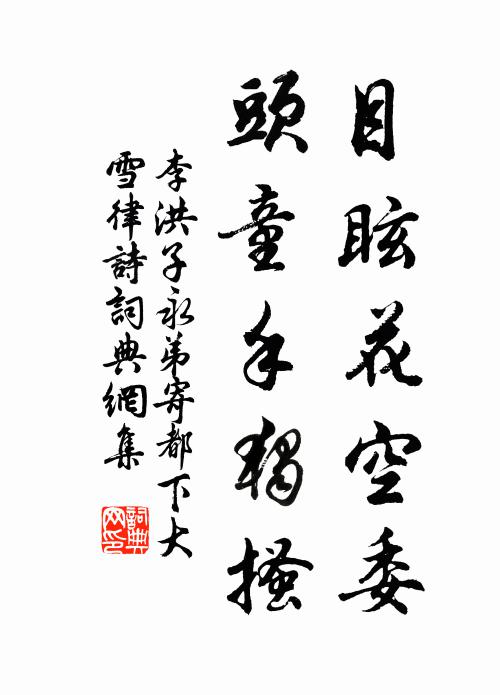 目眩花空委
頭童手獨搔
李洪子永弟寄都下大
雪律詩詞典網集
詞典网印